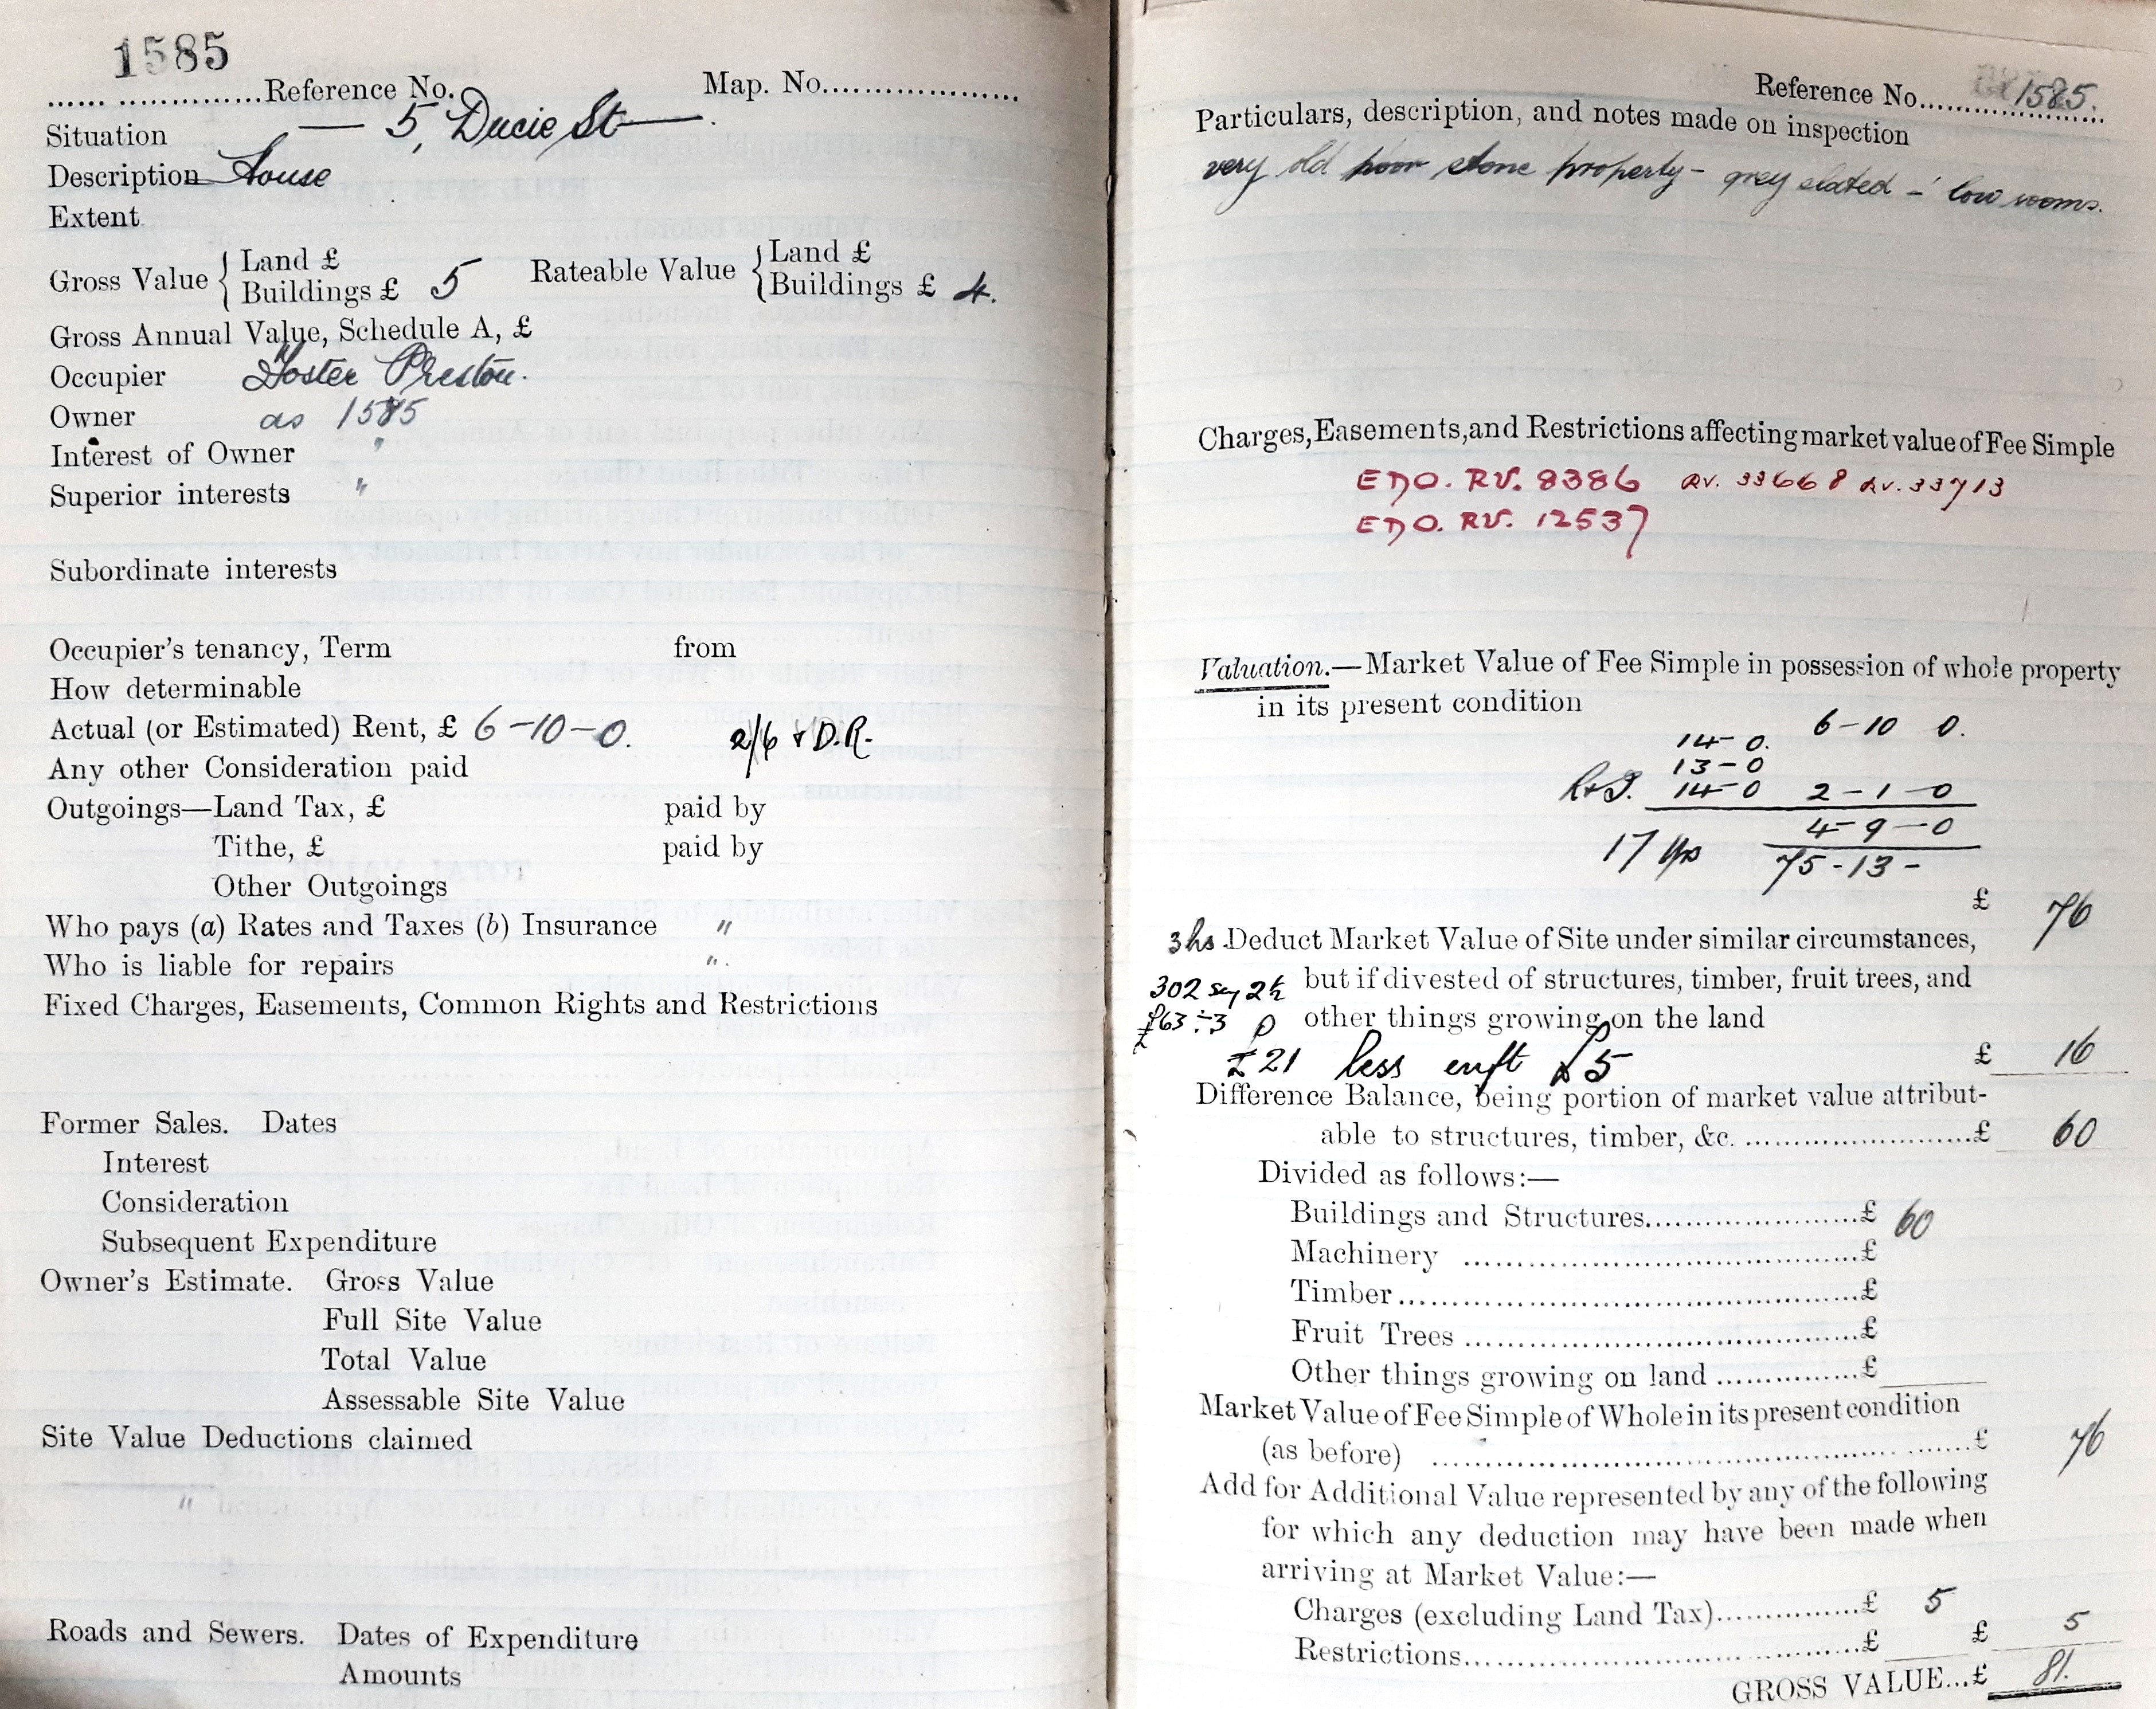 1585
Reference No. Map. No.
Situation — 5, Ducie St —.
Description House
Extent
Gross Value { Land £ Rateable Value { Land £
Buildings £ 5 Buildings £ 4.
Gross Annual Value, Schedule A, £
Occupier Foster Preston.
Owner as 1585
Interest of Owner "
Superior interests "
Subordinate interests
Occupier's tenancy, Term from
How determinable
Actual (or Estimated) Rent, £ 6-10-0. 2/6 & D.R.
Any other Consideration paid
Outgoings—Land Tax, £ paid by
Tithe, £ paid by
Other Outgoings
Who pays (a) Rates and Taxes (b) Insurance "
Who is liable for repairs "
Fixed Charges, Easements, Common Rights and Restrictions
Former Sales. Dates
Interest
Consideration
Subsequent Expenditure
Owner's Estimate. Gross Value
Full Site Value
Total Value
Assessable Site Value
Site Value Deductions claimed
"
Roads and Sewers. Dates of Expenditure
Amounts
Reference No. 1585.
Particulars, description, and notes made on inspection
very old poor stone property - grey slated - low rooms.
Charges, Easements, and Restrictions affecting market value of Fee Simple
EDO. RV. 8386 RV. 33668 RV. 33713
EDO. RV. 12537
Valuation.—Market Value of Fee Simple in possession of whole property
in its present condition
6-10 0.
14-0.
13-0
R&I. 14-0 2-1-0
4-9-0
17 yps 75-13-
£ 76
3 hs Deduct Market Value of Site under similar circumstances,
302 sey 2½ but if divested of structures, timber, fruit trees, and
£63÷3 other things growing on the land
£21 less enft £5 £ 16
Difference Balance, being portion of market value attribut-
able to structures, timber, &c. £ 60
Divided as follows:—
Buildings and Structures £ 60
Machinery £
Timber £
Fruit Trees £
Other things growing on land £
Market Value of Fee Simple of Whole in its present condition
(as before) £ 76
Add for Additional Value represented by any of the following
for which any deduction may have been made when
arriving at Market Value:—
Charges (excluding Land Tax) £ 5
Restrictions £ £ 5
GROSS VALUE...£ 81.